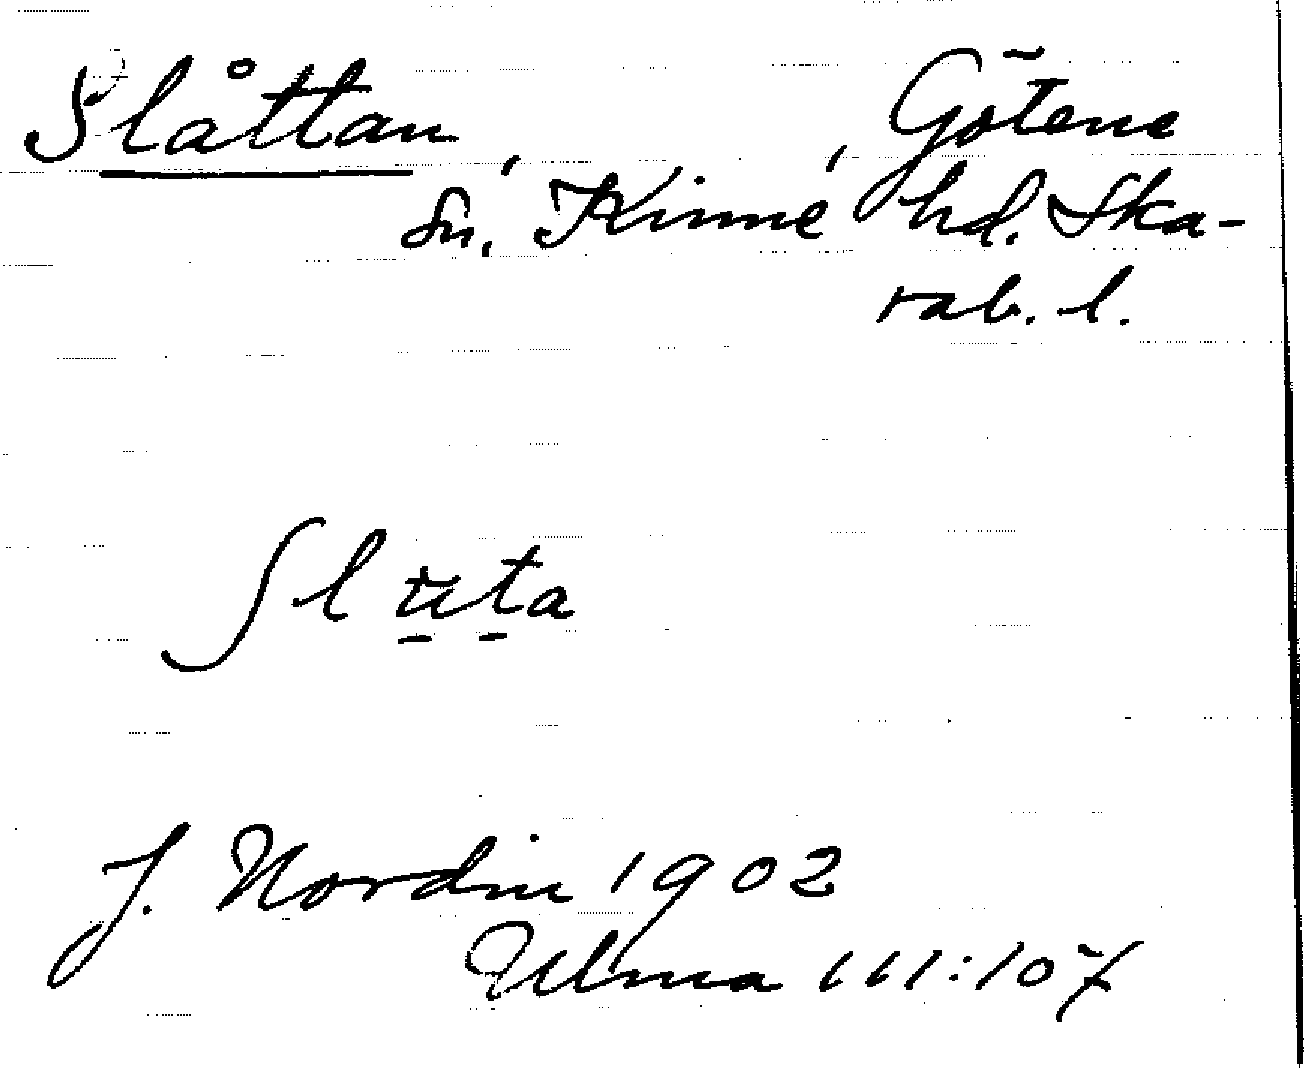 Slåttan, Götene
sn, Kinne hd. Ska-
rab. l.
Slu̠t̠a
J. Nordin 1902
Ulma 111:107